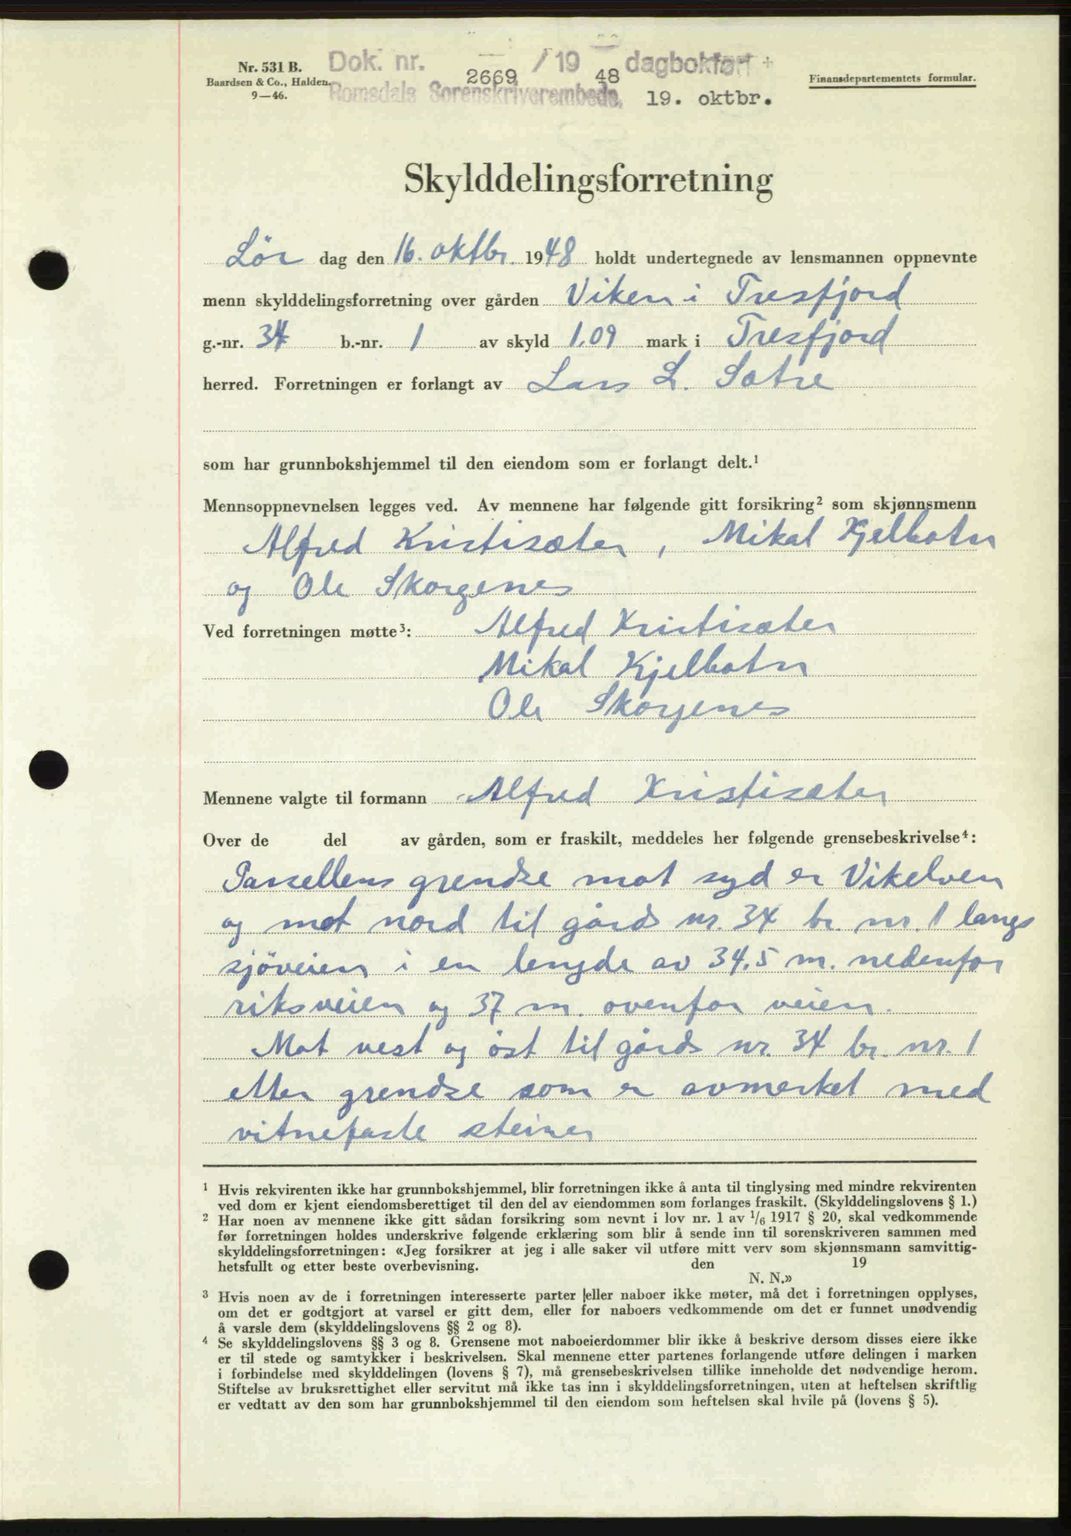 Nr. 531 B.
Baardsen & Co., Halden.
9—46.
Dok. nr. 2669 / 19 48 dagbokført
Romsdals Sorenskriverembede, 19. oktbr.
Finansdepartementets formular.
Skylddelingsforretning
Lör dag den 16. oktbr. 1948 holdt undertegnede av lensmannen oppnevnte
menn skylddelingsforretning over gården Viken i Tresfjord
g.-nr. 34 b.-nr. 1 av skyld 1.09 mark i Tresfjord
herred. Forretningen er forlangt av Lars L. Sætre
som har grunnbokshjemmel til den eiendom som er forlangt delt.¹
Mennsoppnevnelsen legges ved. Av mennene har følgende gitt forsikring² som skjønnsmenn
Alfred Kristisæter, Mikal Kjelbotn
og Ole Skorgenes
Ved forretningen møtte³: Alfred Kristisæter
Mikal Kjelbotn
Ole Skorgenes
Mennene valgte til formann Alfred Kristisæter
Over de del av gården, som er fraskilt, meddeles her følgende grensebeskrivelse⁴:
Parsellens grendse mot syd er Vikelven
og mot nord til gårds nr. 34 br. nr. 1 langs
sjöveien i en lengde av 34,5 m. nedenfor
riksveien og 37 m. ovenfor veien.
Mot vest og öst til gårds nr. 34 br. nr. 1
etter grendse som er avmerket med
vitnefaste steiner
¹ Hvis rekvirenten ikke har grunnbokshjemmel, blir forretningen ikke å anta til tinglysing med mindre rekvirenten
ved dom er kjent eiendomsberettiget til den del av eiendommen som forlanges fraskilt. (Skylddelingslovens § 1.)
² Har noen av mennene ikke gitt sådan forsikring som nevnt i lov nr. 1 av 1/6 1917 § 20, skal vedkommende
før forretningen holdes underskrive følgende erklæring som blir å sende inn til sorenskriveren sammen med
skylddelingsforretningen: «Jeg forsikrer at jeg i alle saker vil utføre mitt verv som skjønnsmann samvittig-
hetsfullt og etter beste overbevisning. den 19
N. N.»
³ Hvis noen av de i forretningen interesserte parter eller naboer ikke møter, må det i forretningen opplyses,
om det er godtgjort at varsel er gitt dem, eller for naboers vedkommende om det er funnet unødvendig
å varsle dem (skylddelingslovens §§ 2 og 8).
⁴ Se skylddelingslovens §§ 3 og 8. Grensene mot naboeierdommer blir ikke å beskrive dersom disses eiere ikke
er til stede og samtykker i beskrivelsen. Skal mennene etter partenes forlangende utføre delingen i marken
i forbindelse med skylddelingen (lovens § 7), må grensebeskrivelsen tillike inneholde det nødvendige herom.
Stiftelse av bruksrettighet eller servitut må ikke tas inn i skylddelingsforretningen, uten at heftelsen skriftlig
er vedtatt av den som har grunnbokshjemmel til den eiendom som heftelsen skal hvile på (lovens § 5).